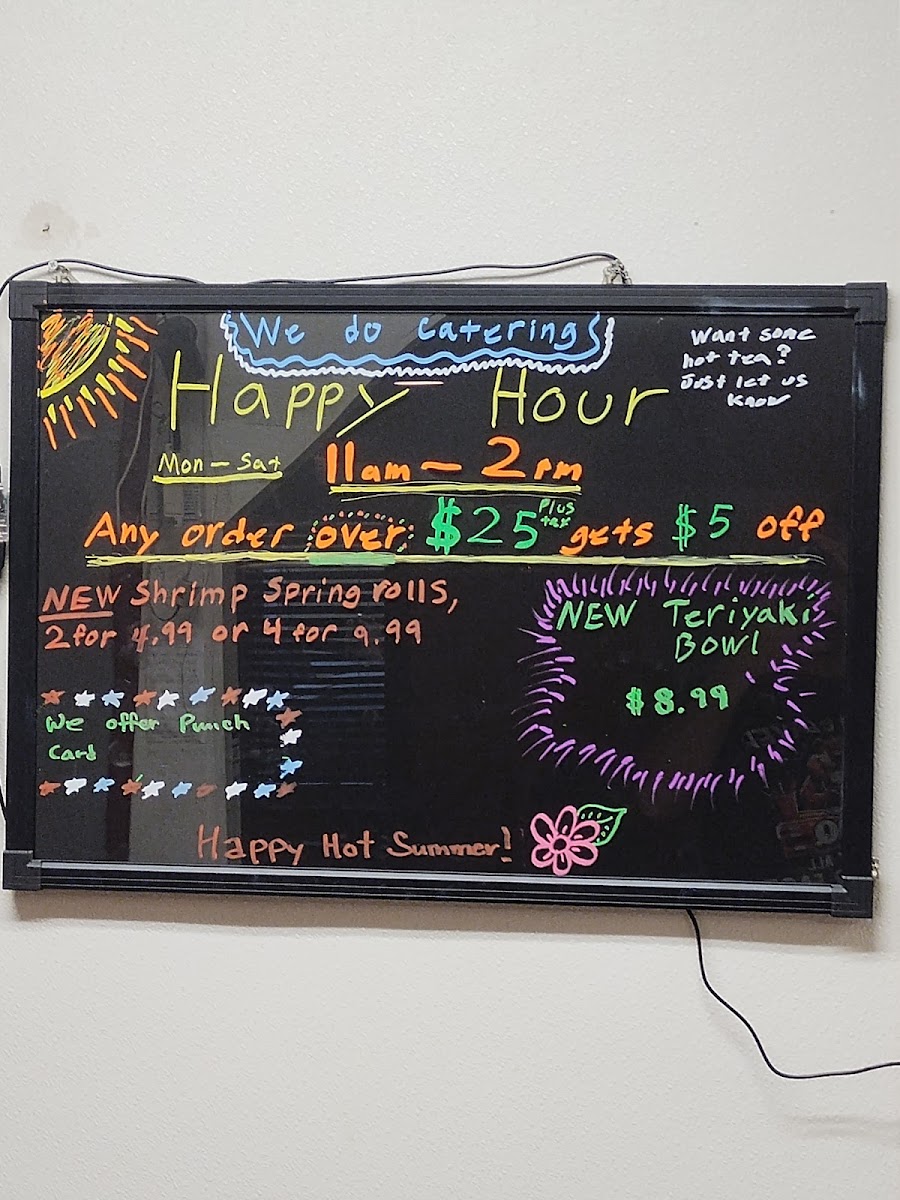 We do catering
Want some
hot tea?
Just let us
know
Happy Hour
Mon - Sat 11am - 2pm
Any order over $25 plus tax gets $5 off
NEW Shrimp Spring rolls,
2 for 4.99 or 4 for 9.99
NEW Teriyaki
BOWl
$8.99
We offer Punch
Card
Happy Hot Summer!